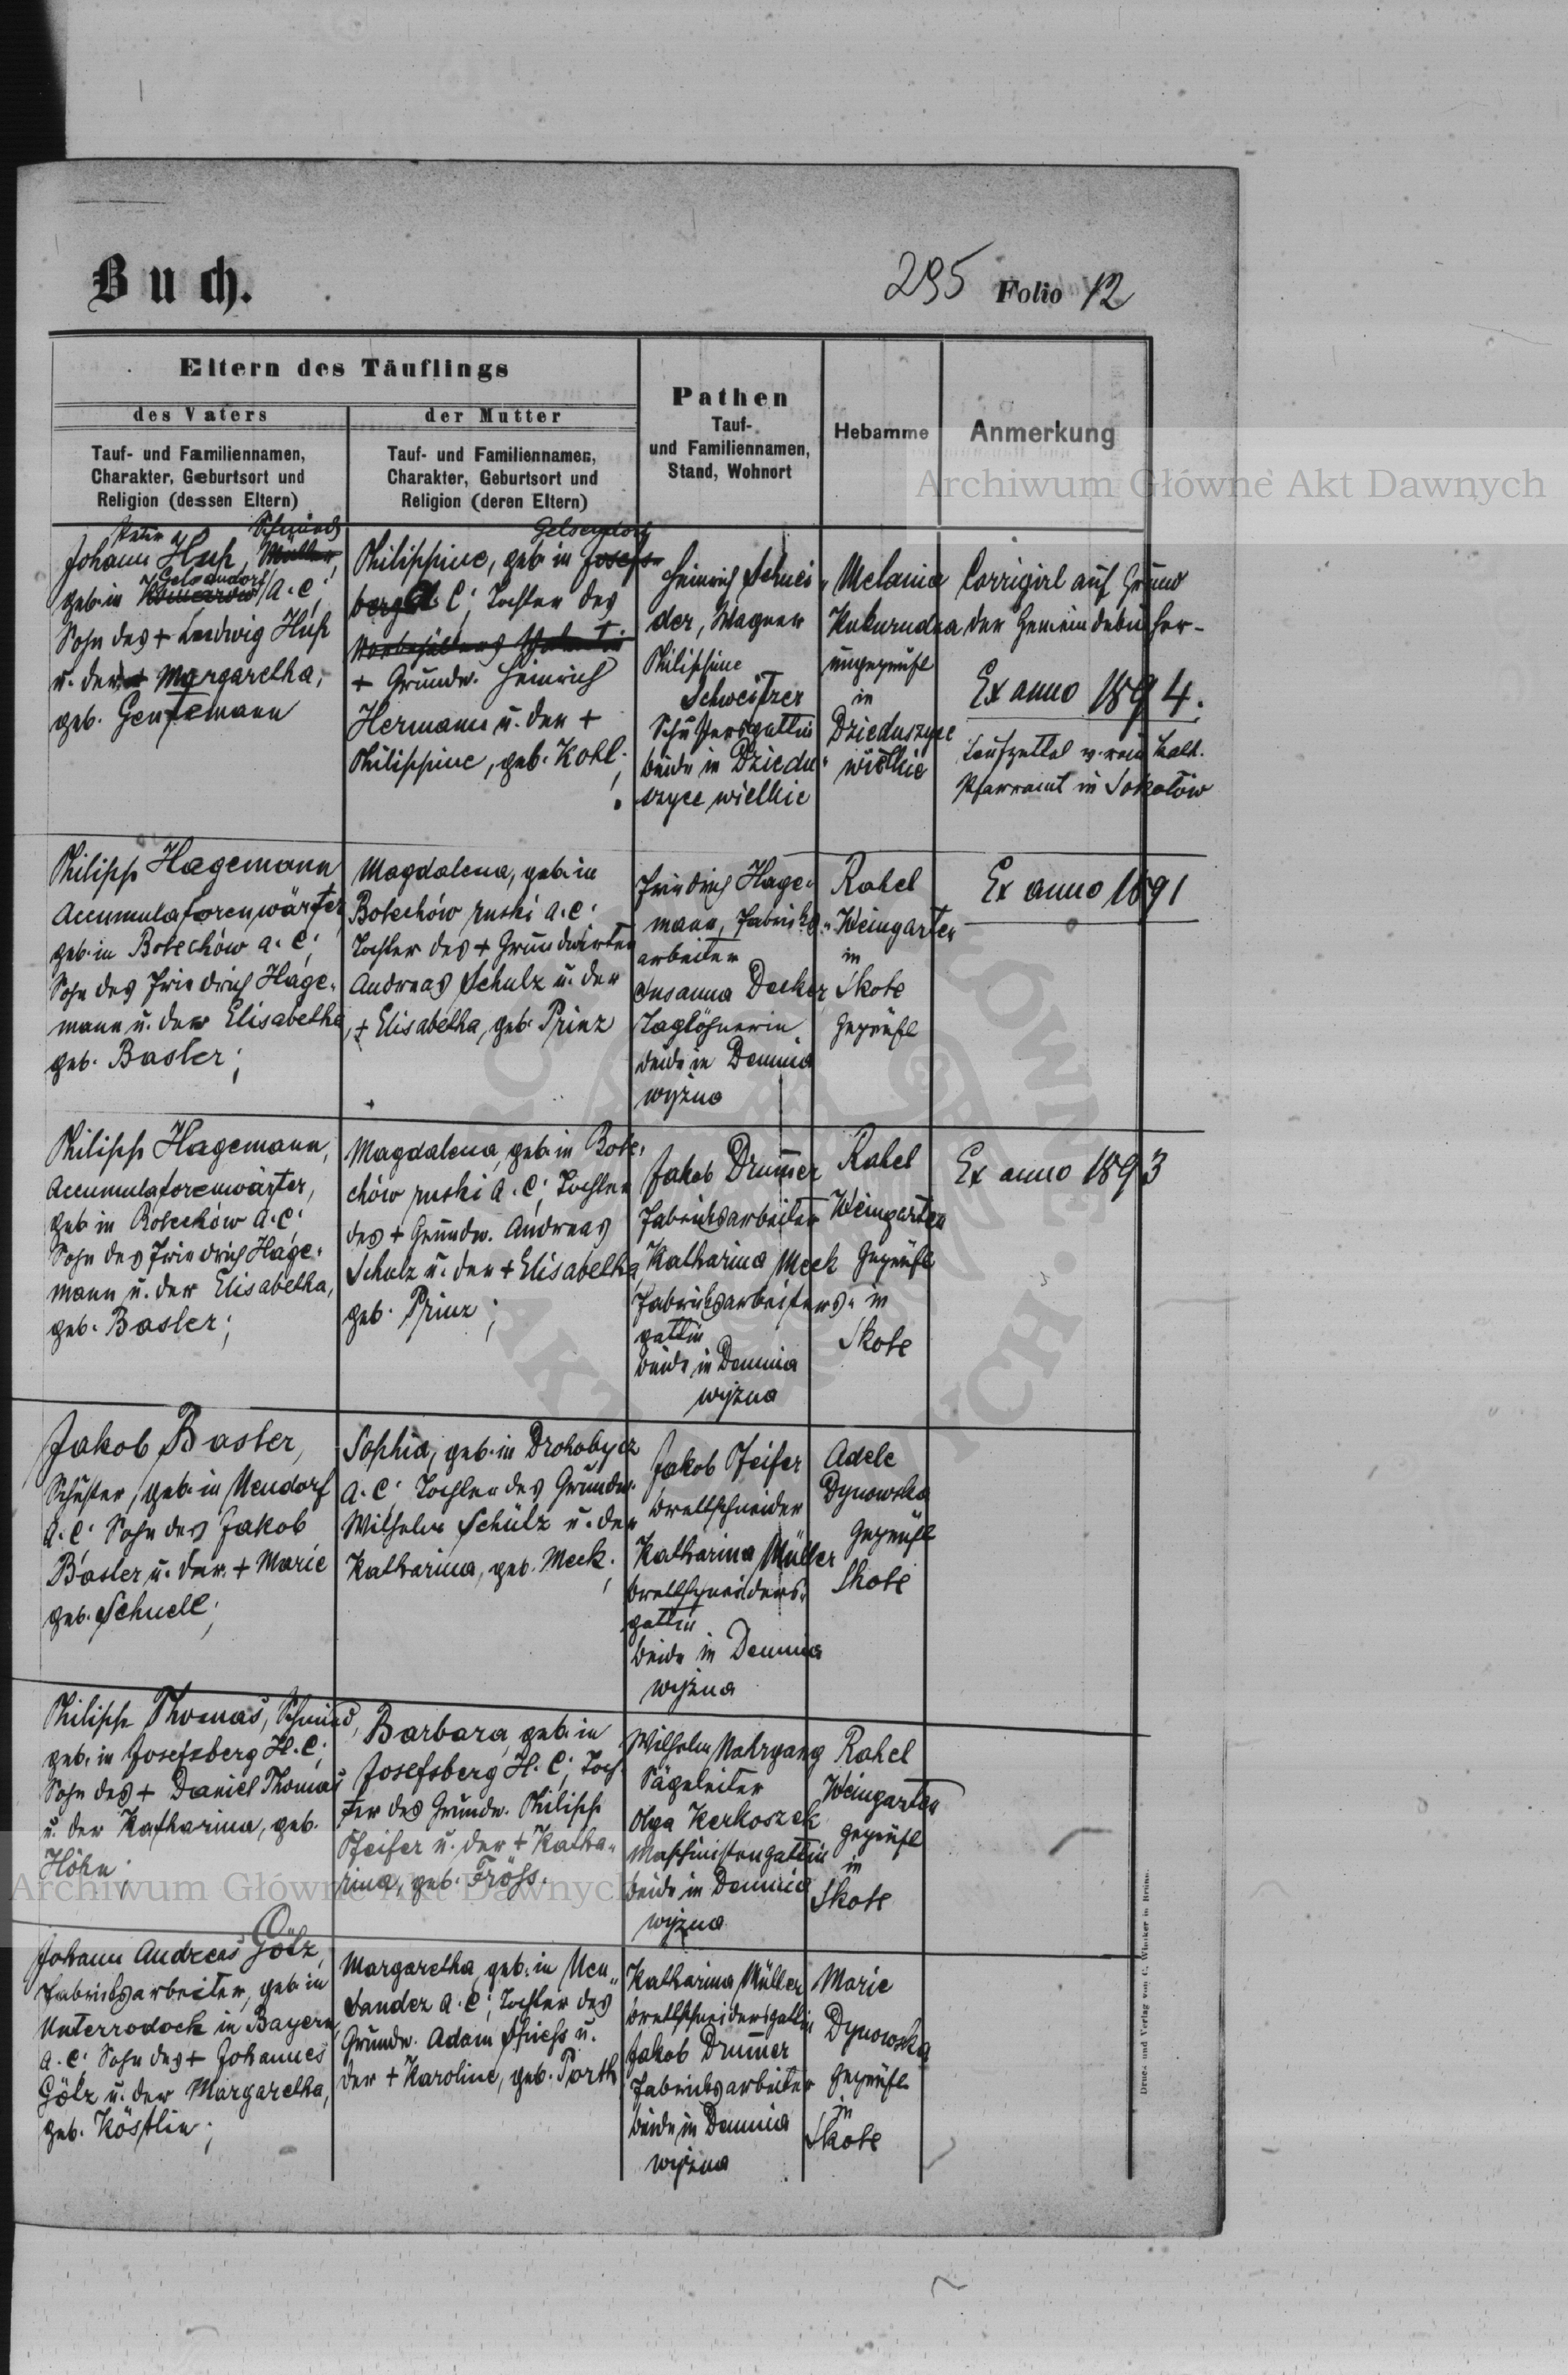 Buch.
295 Folio 12
Eltern des Täuflings
des Vaters
der Mutter
Tauf- und Familiennamen,
Charakter, Geburtsort und
Religion (dessen Eltern)
Tauf- und Familiennamen,
Charakter, Geburtsort und
Religion (deren Eltern)
Pathen
Tauf-
und Familiennamen,
Stand, Wohnort
Hebamme
Anmerkung
Archiwum Główne Akt Dawnych
Schmied
Johann Huß, Müller,
Gelsendorf
geb. in A. C;
Sohn des + Ludwig Huß
u. der + Margaretha,
geb. Gentemann
Gelsendorf
Philippine, geb. in Josefs-
berg A. C; Tochter des
+ Grundw. Heinrich
Hermann u. der +
Philippine, geb. Kohl;
Heinrich Schnei-
der, Wagner
Philippine
Schweitzer
Schustersgattin
beide in Dziedu-
szyce wielkie
Melania
Kukurudza
ungeprüft
in
Dzieduszyce
wielkie
Corrigirt auf Grund
der Gemeindebücher-
Ex anno 1894.
Taufzettel v. röm. kath.
Pfarramt in Sokołów
Philipp Hagemann
Accumulatorenwärter,
geb. in Bolechów A. C;
Sohn des Friedrich Hage-
mann u. der Elisabetha,
geb. Basler;
Magdalena, geb. in
Bolechów ruski A. C;
Tochter des + Grundwirten
Andreas Schulz u. der
+ Elisabetha, geb. Prinz
Friedrich Hage-
mann, Fabriks-
arbeiter
Susanna Decker
Taglöhnerin
beide in Demnia
wyżna
Rahel
Weingarten
in
Skole
geprüft
Ex anno 1891
Philipp Hagemann,
Accumulatorenwärter,
geb. in Bolechów A. C;
Sohn des Friedrich Hage-
mann u. der Elisabetha,
geb. Basler;
Magdalena, geb. in Bole-
chów ruski A. C; Tochter
des + Grundw. Andreas
Schulz u. der + Elisabetha,
geb. Prinz;
Jakob Drummer
Fabriksarbeiter
Katharina Meck
Fabriksarbeiters-
gattin
beide in Demnia
wyżna
Rahel
Weingarten
geprüft
in
Skole
Ex anno 1893
Jakob Basler,
Schuster, geb. in Neudorf
A. C; Sohn des Jakob
Basler u. der + Marie
geb. Schnell;
Sophia, geb. in Drohobycz
A. C; Tochter des Grundw.
Wilhelm Schulz u. der
Katharina, geb. Meck;
Jakob Pfeifer
Brettschneider
Katharina Müller
Brettschneiders-
gattin
beide in Demnia
wyżna
Adele
Dynowska
geprüft
Skole
Philipp Thomas, Schmied,
geb. in Josefsberg H. C;
Sohn des + Daniel Thomas
u. der Katharina, geb.
Höhn;
Barbara, geb. in
Josefsberg H. C; Toch-
ter des Grundw. Philipp
Pfeifer u. der + Katha-
rina, geb. Fröss.
Wilhelm Nahrgang
Sägeleiter
Olga Kerkoszek
Maschinistengattin
beide in Demnia
wyżna
Rahel
Weingarten
geprüft
in
Skole
Archiwum Główne Akt Dawnych
Johann Andreas Götz,
Fabriksarbeiter, geb. in
Unterrodach in Bayern,
A. C; Sohn des + Johannes
Götz u. der Margaretha,
geb. Köstlin;
Margaretha, geb. in Neu-
Sandez A. C; Tochter des
Grundw. Adam Spiess u.
der + Karoline, geb. Porth
Katharina Müller
Brettschneidersgattin
Jakob Drummer
Fabriksarbeiter
beide in Demnia
wyżna
Marie
Dynowska
geprüft
in
Skole
Druck und Verlag von C. Winiker in Brünn.